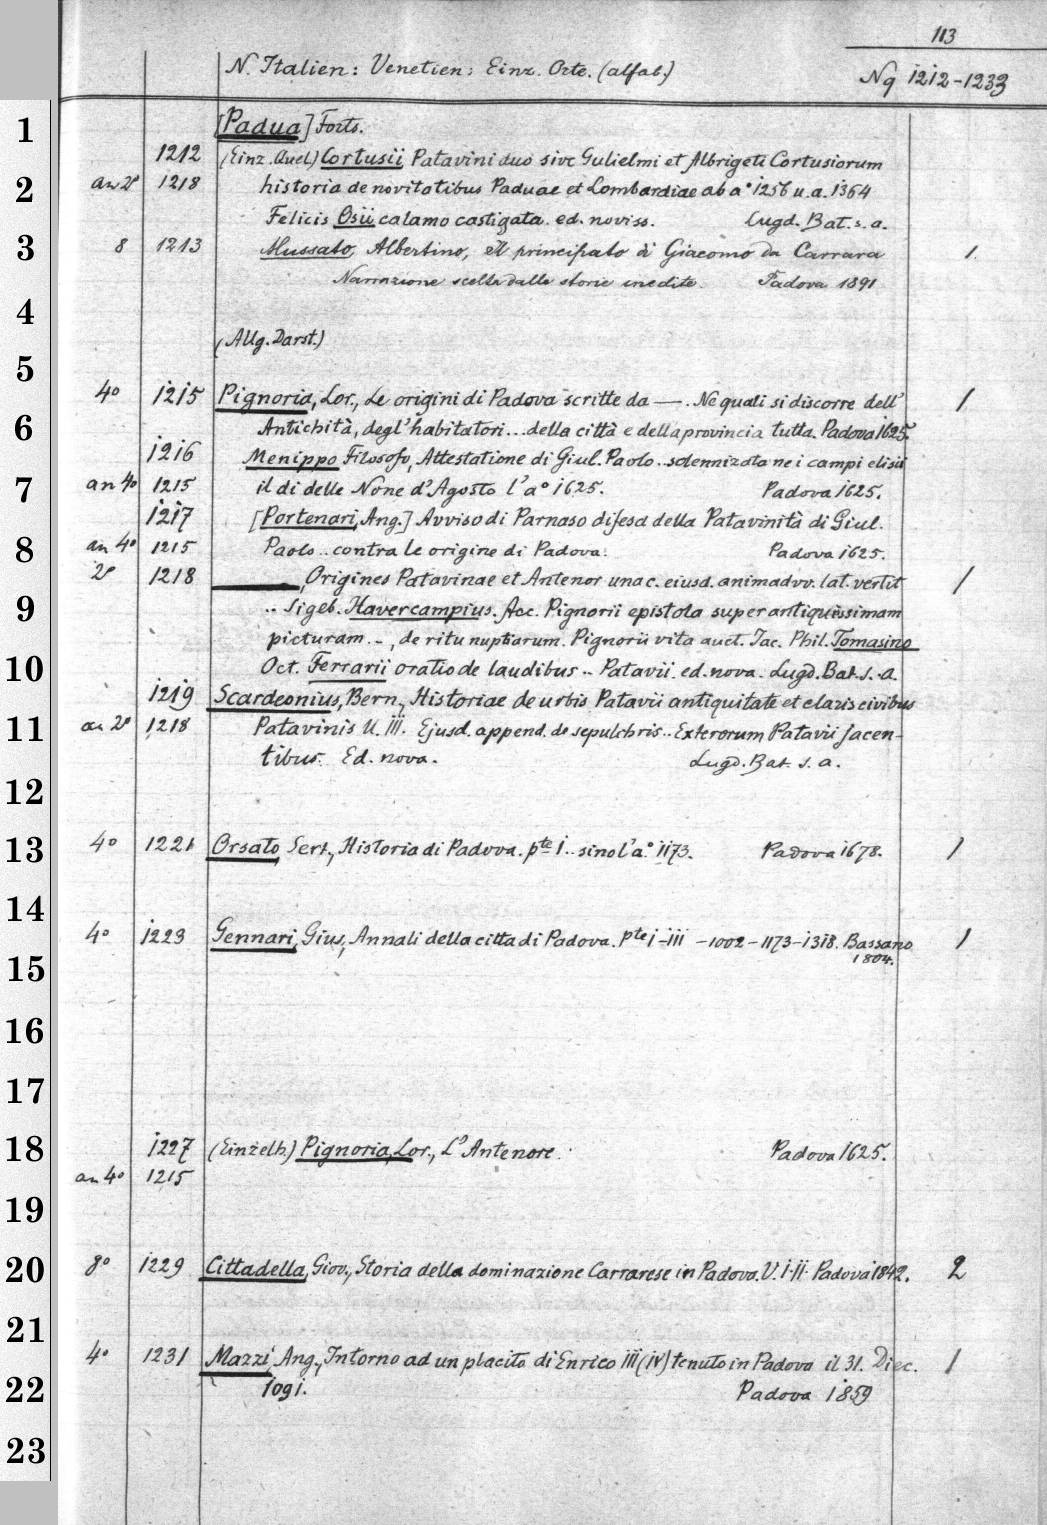 113
N. Italien: Venetien: Einz. Orte. (alfab.) Nq 1212-1233
1 [Padua] Forts.
1212 (Einz. Quel.) Cortusii Patavini duo sive Gulielmi et Albrigeti Cortusiorum
2 an 2° 1218 historia de novitatibus Paduae et Lombardiae ab a° 1256 u. a. 1364
Felicis Osii calamo castigata. ed. noviss. Lugd. Bat. s. a.
3 8 1213 Mussato, Albertino, Il principato di Giacomo da Carrara 1.
Narrazione scelta dalle storie inedite. Padova 1891
4
(Allg. Darst.)
5
4° 1215 Pignoria, Lor., Le origini di Padova scritte da —.. Ne quali si discorre dell' 1
6 Antichità, degl' habitatori... della città e della provincia tutta. Padova 1625.
1216 Menippo Filosofo, Attestatione di Giul. Paolo.. solennizata nei campi elisii
7 an 4° 1215 il di delle None d'Agosto l'a° 1625. Padova 1625.
1217 [Portenari, Ang.] Avviso di Parnaso difesa della Patavinità di Giul.
8 an 4° 1215 Paolo.. contra le origine di Padova. Padova 1625.
2° 1218 ———, Origines Patavinae et Antenor una c. eiusd. animadvv. lat. vertit 1
9 .. Sigeb. Havercampius. Acc. Pignorii epistola super antiquissimam
picturam. –, de ritu nuptiarum. Pignorii vita auct. Jac. Phil. Tomasino
10 Oct. Ferrarii oratio de laudibus.. Patavii. ed. nova. Lugd. Bat. s. a.
1219 Scardeonius, Bern., Historiae de urbis Patavii antiquitate et claris civibus
11 an 2° 1218 Patavinis ll. III. Ejusd. append. de sepulchris.. Exterorum Patavii jacen-
tibus. Ed. nova. Lugd. Bat. s. a.
12
13 4° 1221 Orsato, Sert., Historia di Padova. pte I.. sino l'a.° 1173. Padova 1678. 1
14
4° 1223 Gennari, Gius., Annali della citta di Padova. pte I-III -1002-1173-1318. Bassano 1
1804.
15
16
17
18 1227 (Einzelh.) Pignoria, Lor., L'Antenore. Padova 1625.
an 4° 1215
19
20 8° 1229 Cittadella, Giov., Storia della dominazione Carrarese in Padova. V. I-II. Padova 1842. 2
21
4° 1231 Mazzi, Ang., Intorno ad un placito di Enrico III (IV) tenuto in Padova il 31. Diec. 1
22 1091. Padova 1859
23